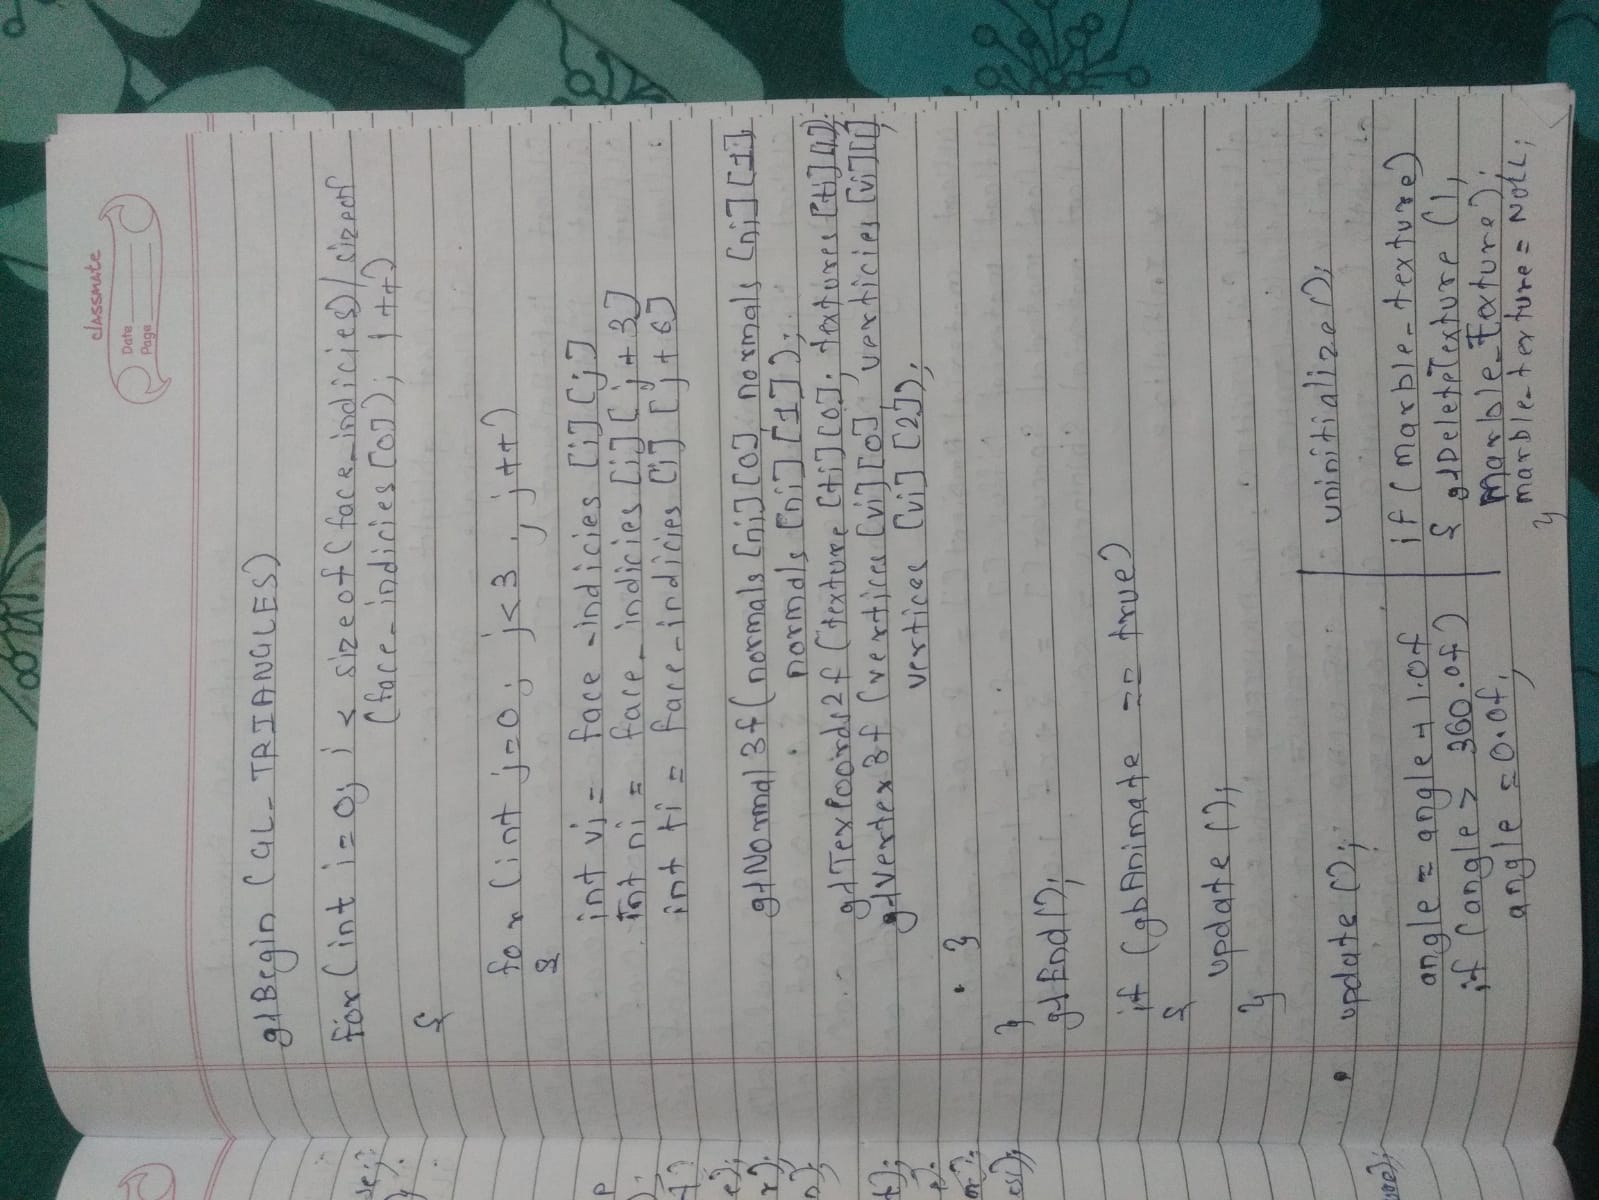 classmate
Date
Page
glBegin (GL_TRIANGLES)
for (int i=0; i < sizeof (face_indicies) / sizeof
(face_indicies [0]); i++)
{
for (int j=0; j<3 ; j++)
{
int vi = face_indicies [i] [j]
int ni = face_indicies [i] [j+3]
int ti = face_indicies [i] [j+6]
glNormal3f (normals [ni] [0], normals [ni] [1],
normals [ni] [1]);
glTexCoords2f (texture [ti] [0]; textures [ti] [1]);
glVertex3f (vertices [vi] [0], verticies [vi] [1],
vertices [vi] [2]);
}
}
glEnd ();
if (gbAnimate == true)
{
update ();
}
update ();
angle = angle + 1.0f
if (angle > 360.0f)
angle = 0.0f;
uninitialize ();
if (marble_texture)
{ glDeleteTexture (1,
marble_Texture);
marble_texture = NULL;
}